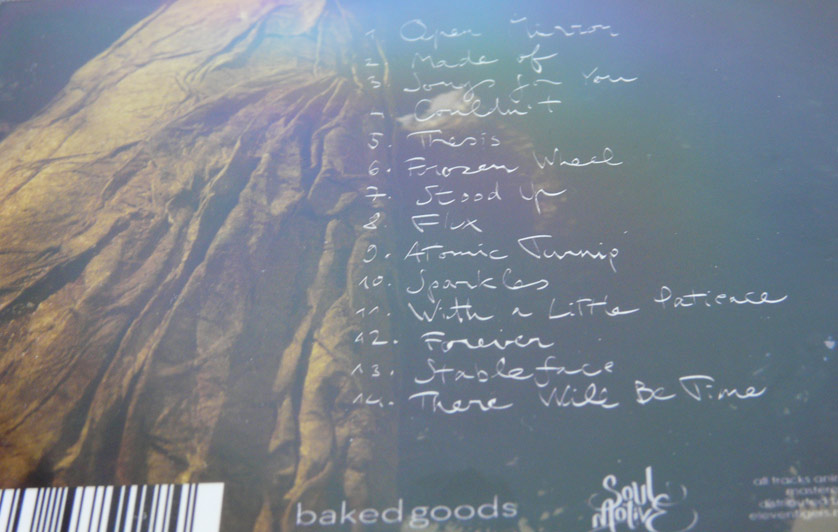 1 Open Mirror
2. Made of
3 Songs for You
Couldn't
5. Thesis
6. Frozen Wheel
7. Stood up
8. Flux
9. Atomic Turnip
10. Sparkles
11. With a Little Patience
12. Forever
13. Stableface
14. There Will Be Time
baked goods
Soul
Motive
all tracks